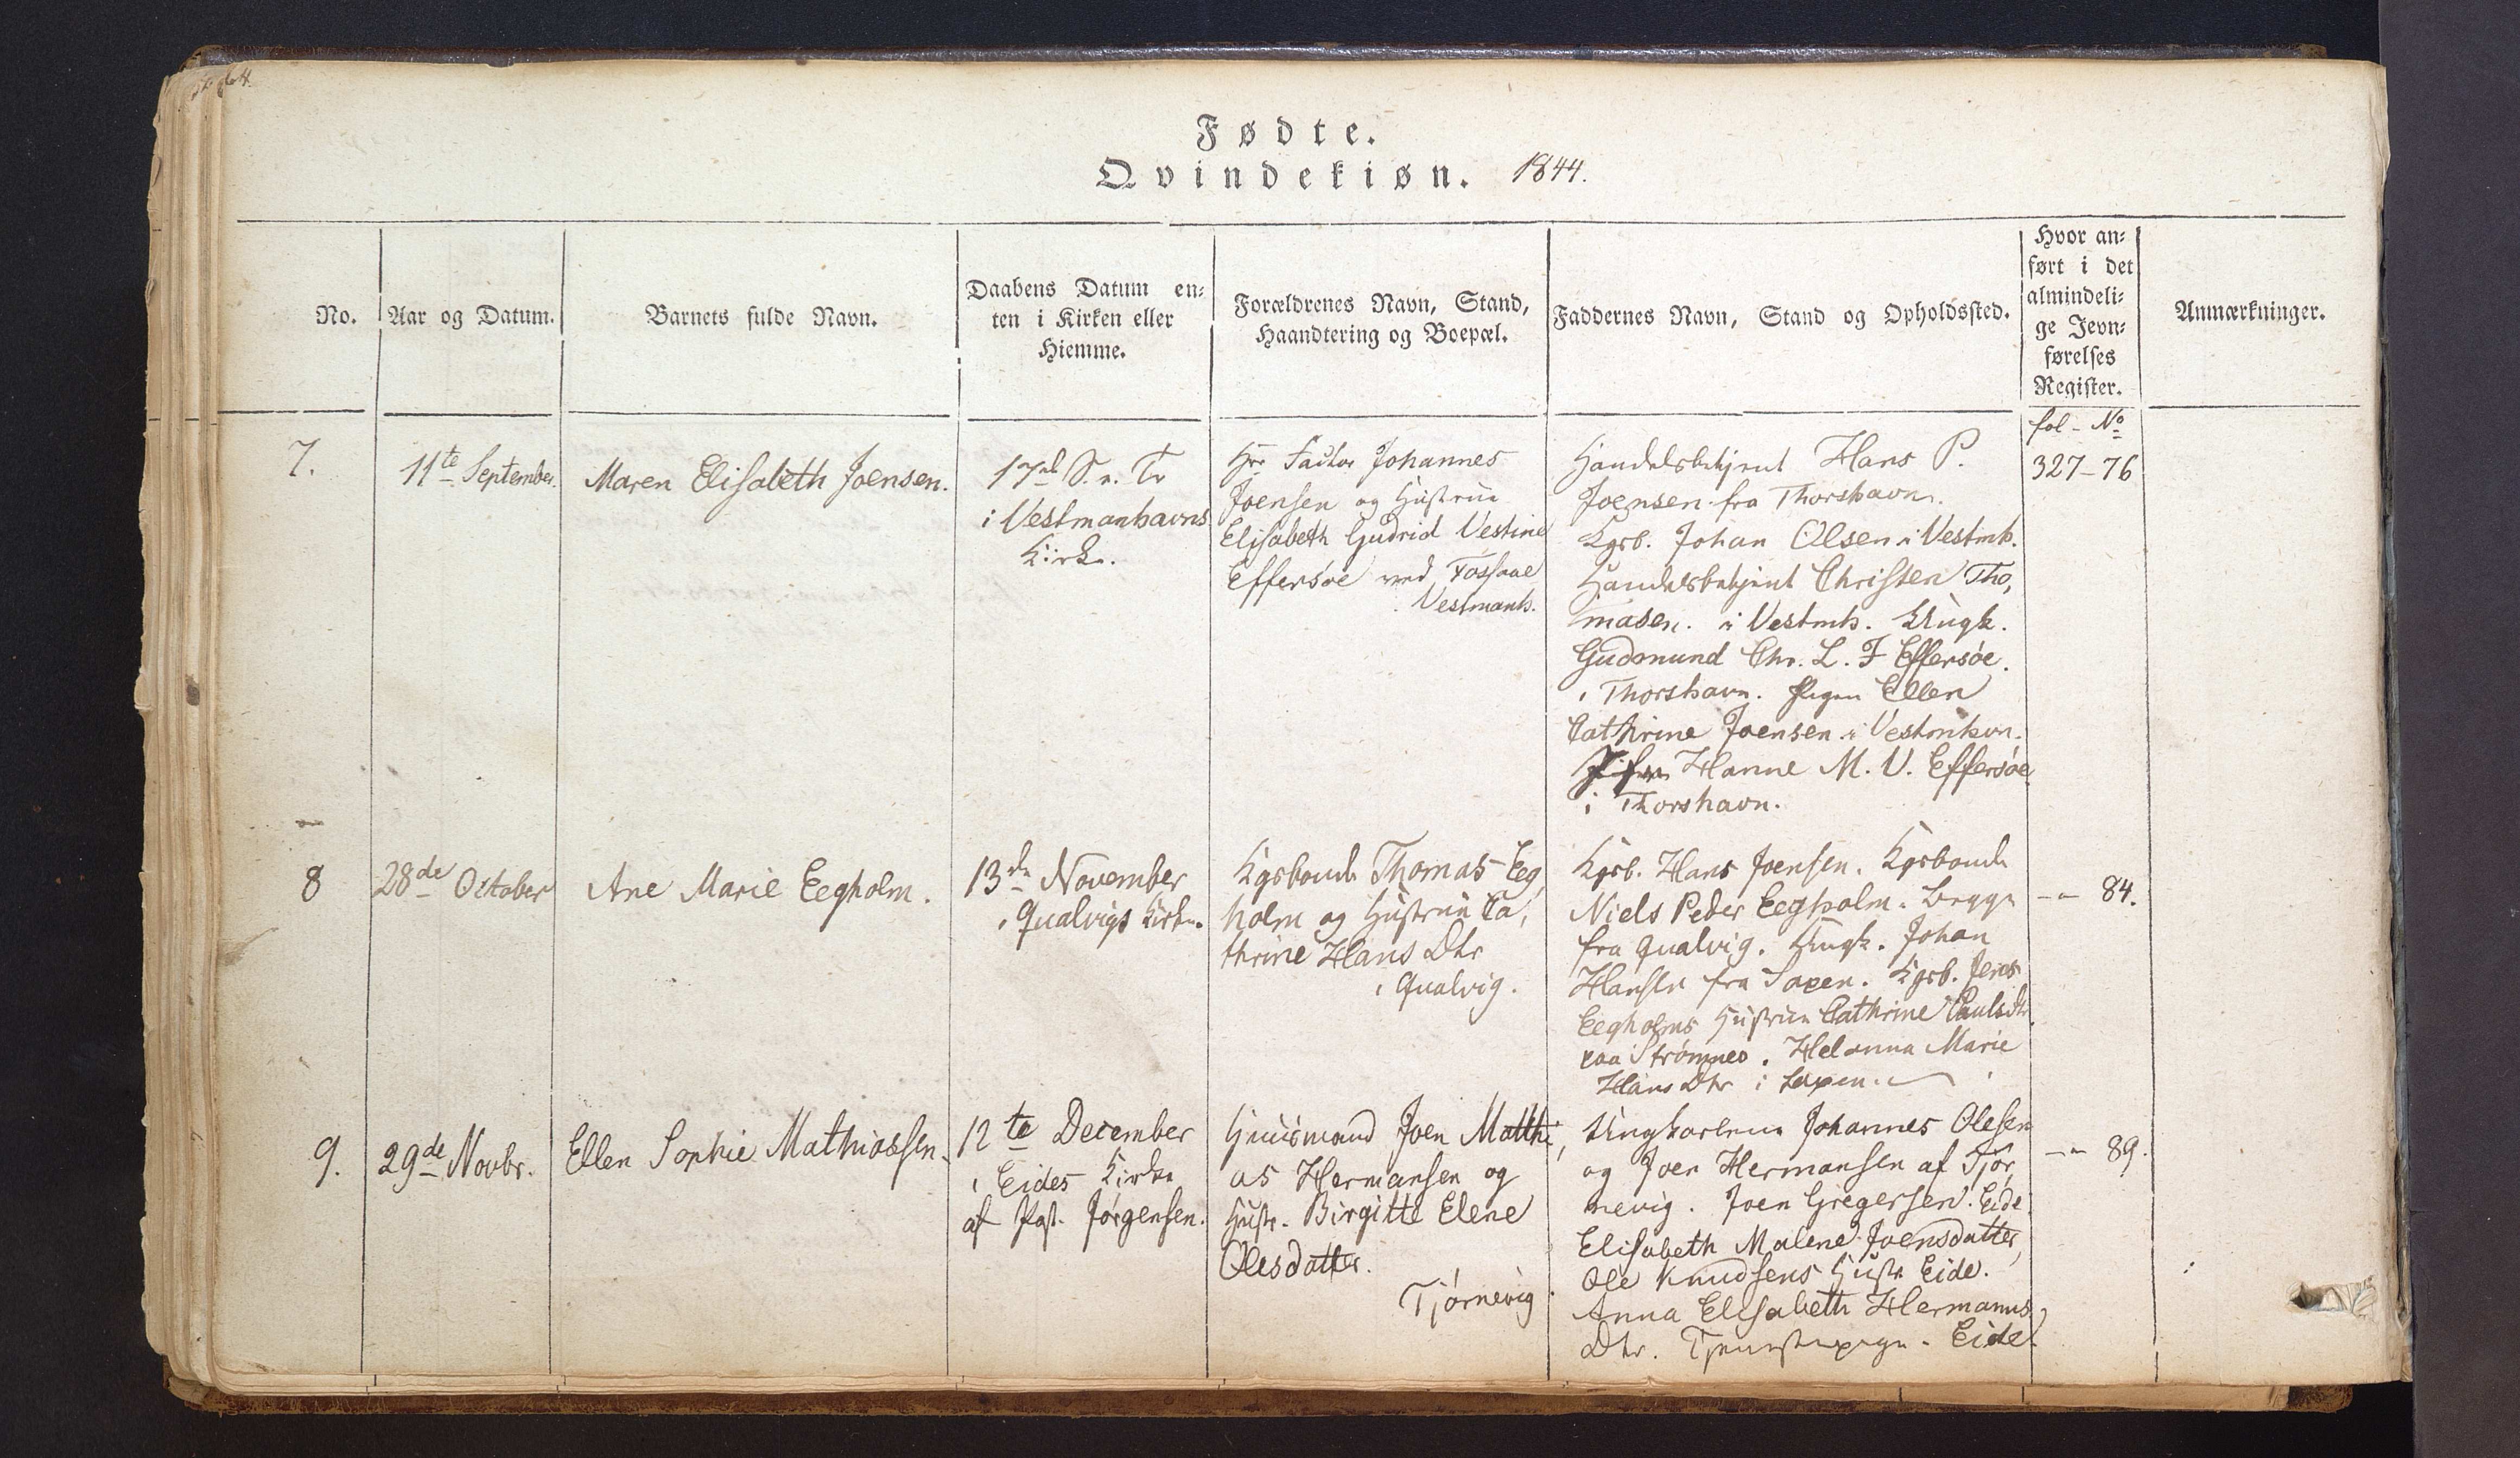 Fødte.
Qvindekiøn. 1844.
No.
Aar og Datum.
Barnets fulde Navn.
Daabens Datum en=
ten i Kirken eller
Hiemme.
Forældrenes Navn, Stand,
Haandtering og Boepæl.
Faddernes Navn, Stand og Opholdssted.
Hvor an=
ført i det
almindeli=
ge Jevn=
førelses
Register.
Anmærkninger.
fol - No
7.
11te September.
Maren Elisabeth Joensen.
17de S. e. Tr
i Vestmanhavns
Kirke.
Hr Factor Johannes
Joensen og Hustrue
Elisabeth Gudrid Vestine
Effersøe ved Fossaae
Vestmanh.
Handelsbetjent Hans P.
Joensen fra Thorshavn.
Kgsb. Johan Olsen i Vestmh.
Handelsbetjent Christen Tho,
masen. i Vestmh. Ungk.
Gudmund Chr. L. F Effersøe.
i Thorshavn. Pigen Ellen
Cathrine Joensen i Vestmhvn.
Hanne M. V. Effersøe
i Thorshavn.
327-76
8
28de October
Ane Marie Eegholm.
13de November
i Qualvigs Kirke.
Kgsbonde Thomas Eeg,
holm og Hustrue Ca,
thrine Hans Dtr
i Qualvig.
Kgsb. Hans Joensen. Kgsbonde
Niels Peder Eegholm. begge
fra Qualvig. Ungk. Johan
Hansen fra Saxen. Kgsb. Jens
Eegholms Hustrue Cathrine Paulsdtr.
paa Strømnes. Helanna Marie
Hans Dtr i Saxen.
-"- 84.
9.
29de Novbr.
Ellen Sophie Mathiassen.
12te December
i Eides Kirke
af Past. Jørgensen.
Huusmand Joen Matthi,
as Hermansen og
Hustr. Birgitte Elene
Olesdatter.
Tjørnevig.
Ungkarlene Johannes Olesen
og Joen Hermansen af Tjør,
nevig. Joen Gregersen. Eide.
Elisabeth Malene Joensdatter,
Ole Knudsens Hustr Eide.
Anna Elisabeth Hermanns,
Dtr. Tjenestepige. Eide.
-"- 89.